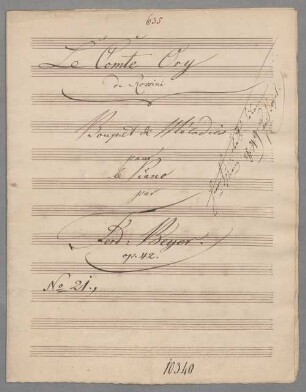 635
Le Comte Ory
de Rossini
Bouquet de Mélodies
pour
le Piano
par
Ferd. Beyer.
op: 42.
No 21.,
10340